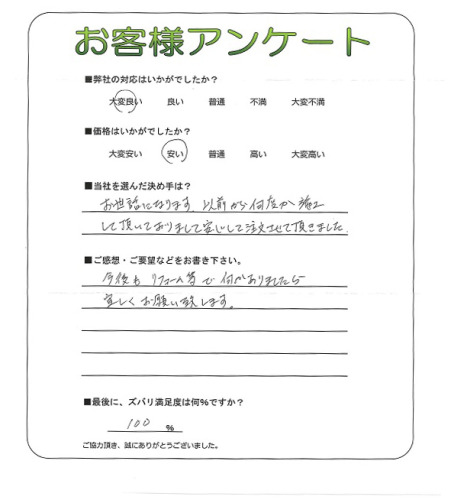 お客様アンケート
■弊社の対応はいかがでしたか？
大変良い 良い 普通 不満 大変不満
■価格はいかがでしたか？
大変安い 安い 普通 高い 大変高い
■当社を選んだ決め手は？
お世話になります。以前から何度か施工
して頂いておりまして安心して注文させて頂きました。
■ご感想・ご要望などをお書き下さい。
今後も リフォーム等で何かありましたら
宜しくお願い致します。
■最後に、ズバリ満足度は何%ですか？
100 %
ご協力頂き、誠にありがとうございました。